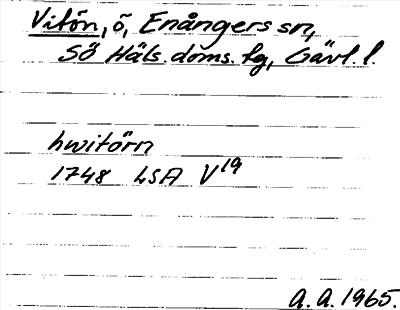 Vitön, ö, Enångers sn,
Sö Häls. doms. tg, Gävl. l.
hwitörn
1748 LSA V19
A.A. 1965.